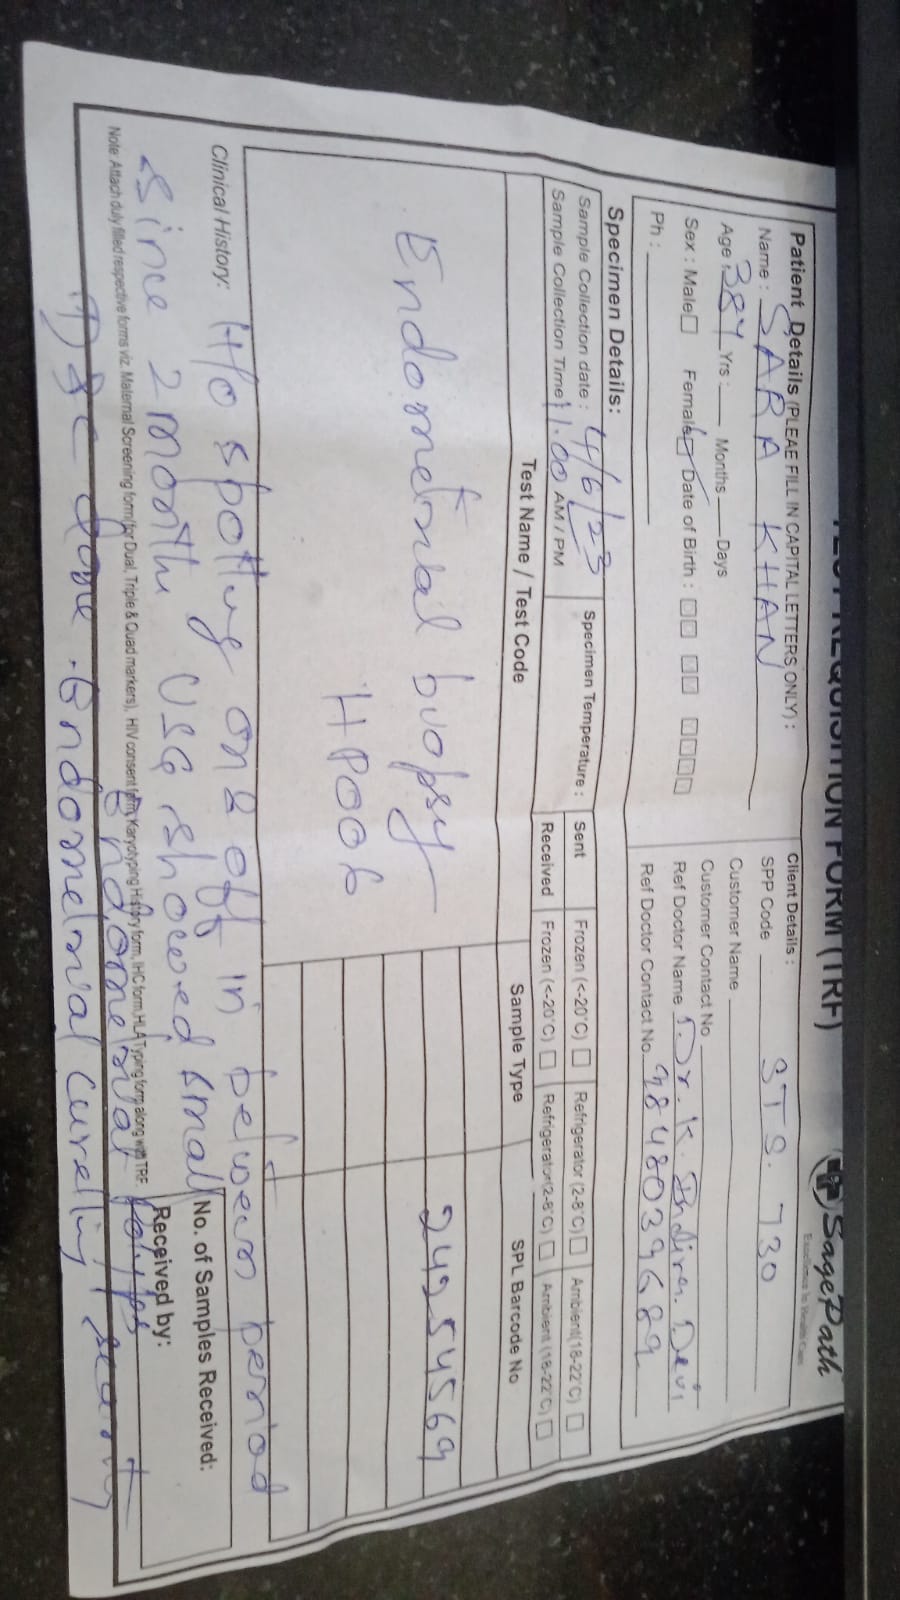 TEST REQUISITION FORM (TRF)
SagePath
Patient Details (PLEAE FILL IN CAPITAL LETTERS ONLY) :
Name : SARA KHAN
Age 38Y Yrs : Months Days
Sex : Male Female Date of Birth :
Ph :
Client Details :
SPP Code STS. 730
Customer Name
Customer Contact No
Ref Doctor Name Dr. K. Indira Devi
Ref Doctor Contact No. 9848039689
Specimen Details:
Sample Collection date : 4/6/23
Sample Collection Time 11.00 AM / PM
Specimen Temperature :
Sent Frozen (<-20°C) Refrigerator (2-8°C) Ambient(18-22°C)
Received Frozen (<-20°C) Refrigerator(2-8°C) Ambient (18-22°C)
Test Name / Test Code Sample Type SPL Barcode No
Endometrial biopsy 24254569
HP006
Clinical History: H/o spotting on & off in between period
since 2 month USG showed small
Endometrial Polyps
No. of Samples Received:
Received by:
Note Attach duly filled respective forms viz. Maternal Screening form(for Dual, Triple & Quad markers), HIV consent form, Karyotyping History form, IHC form, HLA Typing form along with TRF
D&C done. Endometrial curetting